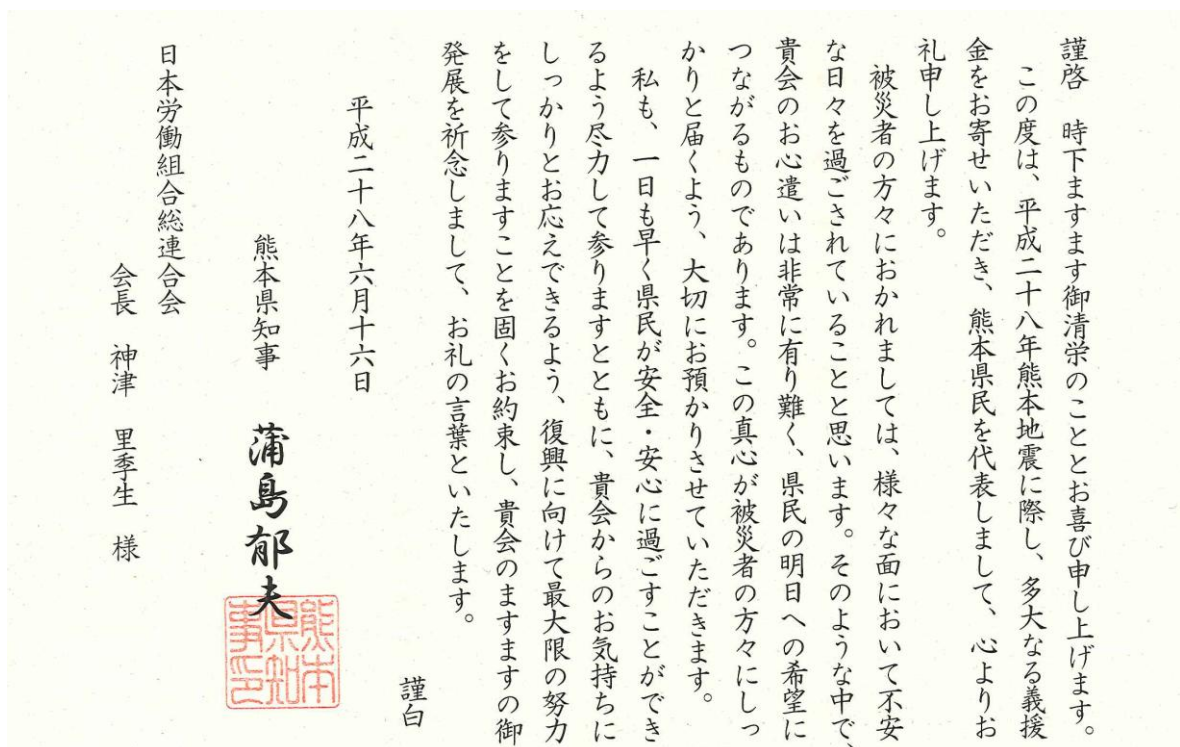 謹啓　時下ますます御清栄のこととお喜び申し上げます。
この度は、平成二十八年熊本地震に際し、多大なる義援
金をお寄せいただき、熊本県民を代表しまして、心よりお
礼申し上げます。
被災者の方々におかれましては、様々な面において不安
な日々を過ごされていることと思います。そのような中で、
貴会のお心遣いは非常に有り難く、県民の明日への希望に
つながるものであります。この真心が被災者の方々にしっ
かりと届くよう、大切にお預かりさせていただきます。
私も、一日も早く県民が安全・安心に過ごすことができ
るよう尽力して参りますとともに、貴会からのお気持ちに
しっかりとお応えできるよう、復興に向けて最大限の努力
をして参りますことを固くお約束し、貴会のますますの御
発展を祈念しまして、お礼の言葉といたします。
謹白
平成二十八年六月十六日
熊本県知事　蒲島郁夫
熊本県知事印
日本労働組合総連合会
会長　神津　里季生　様